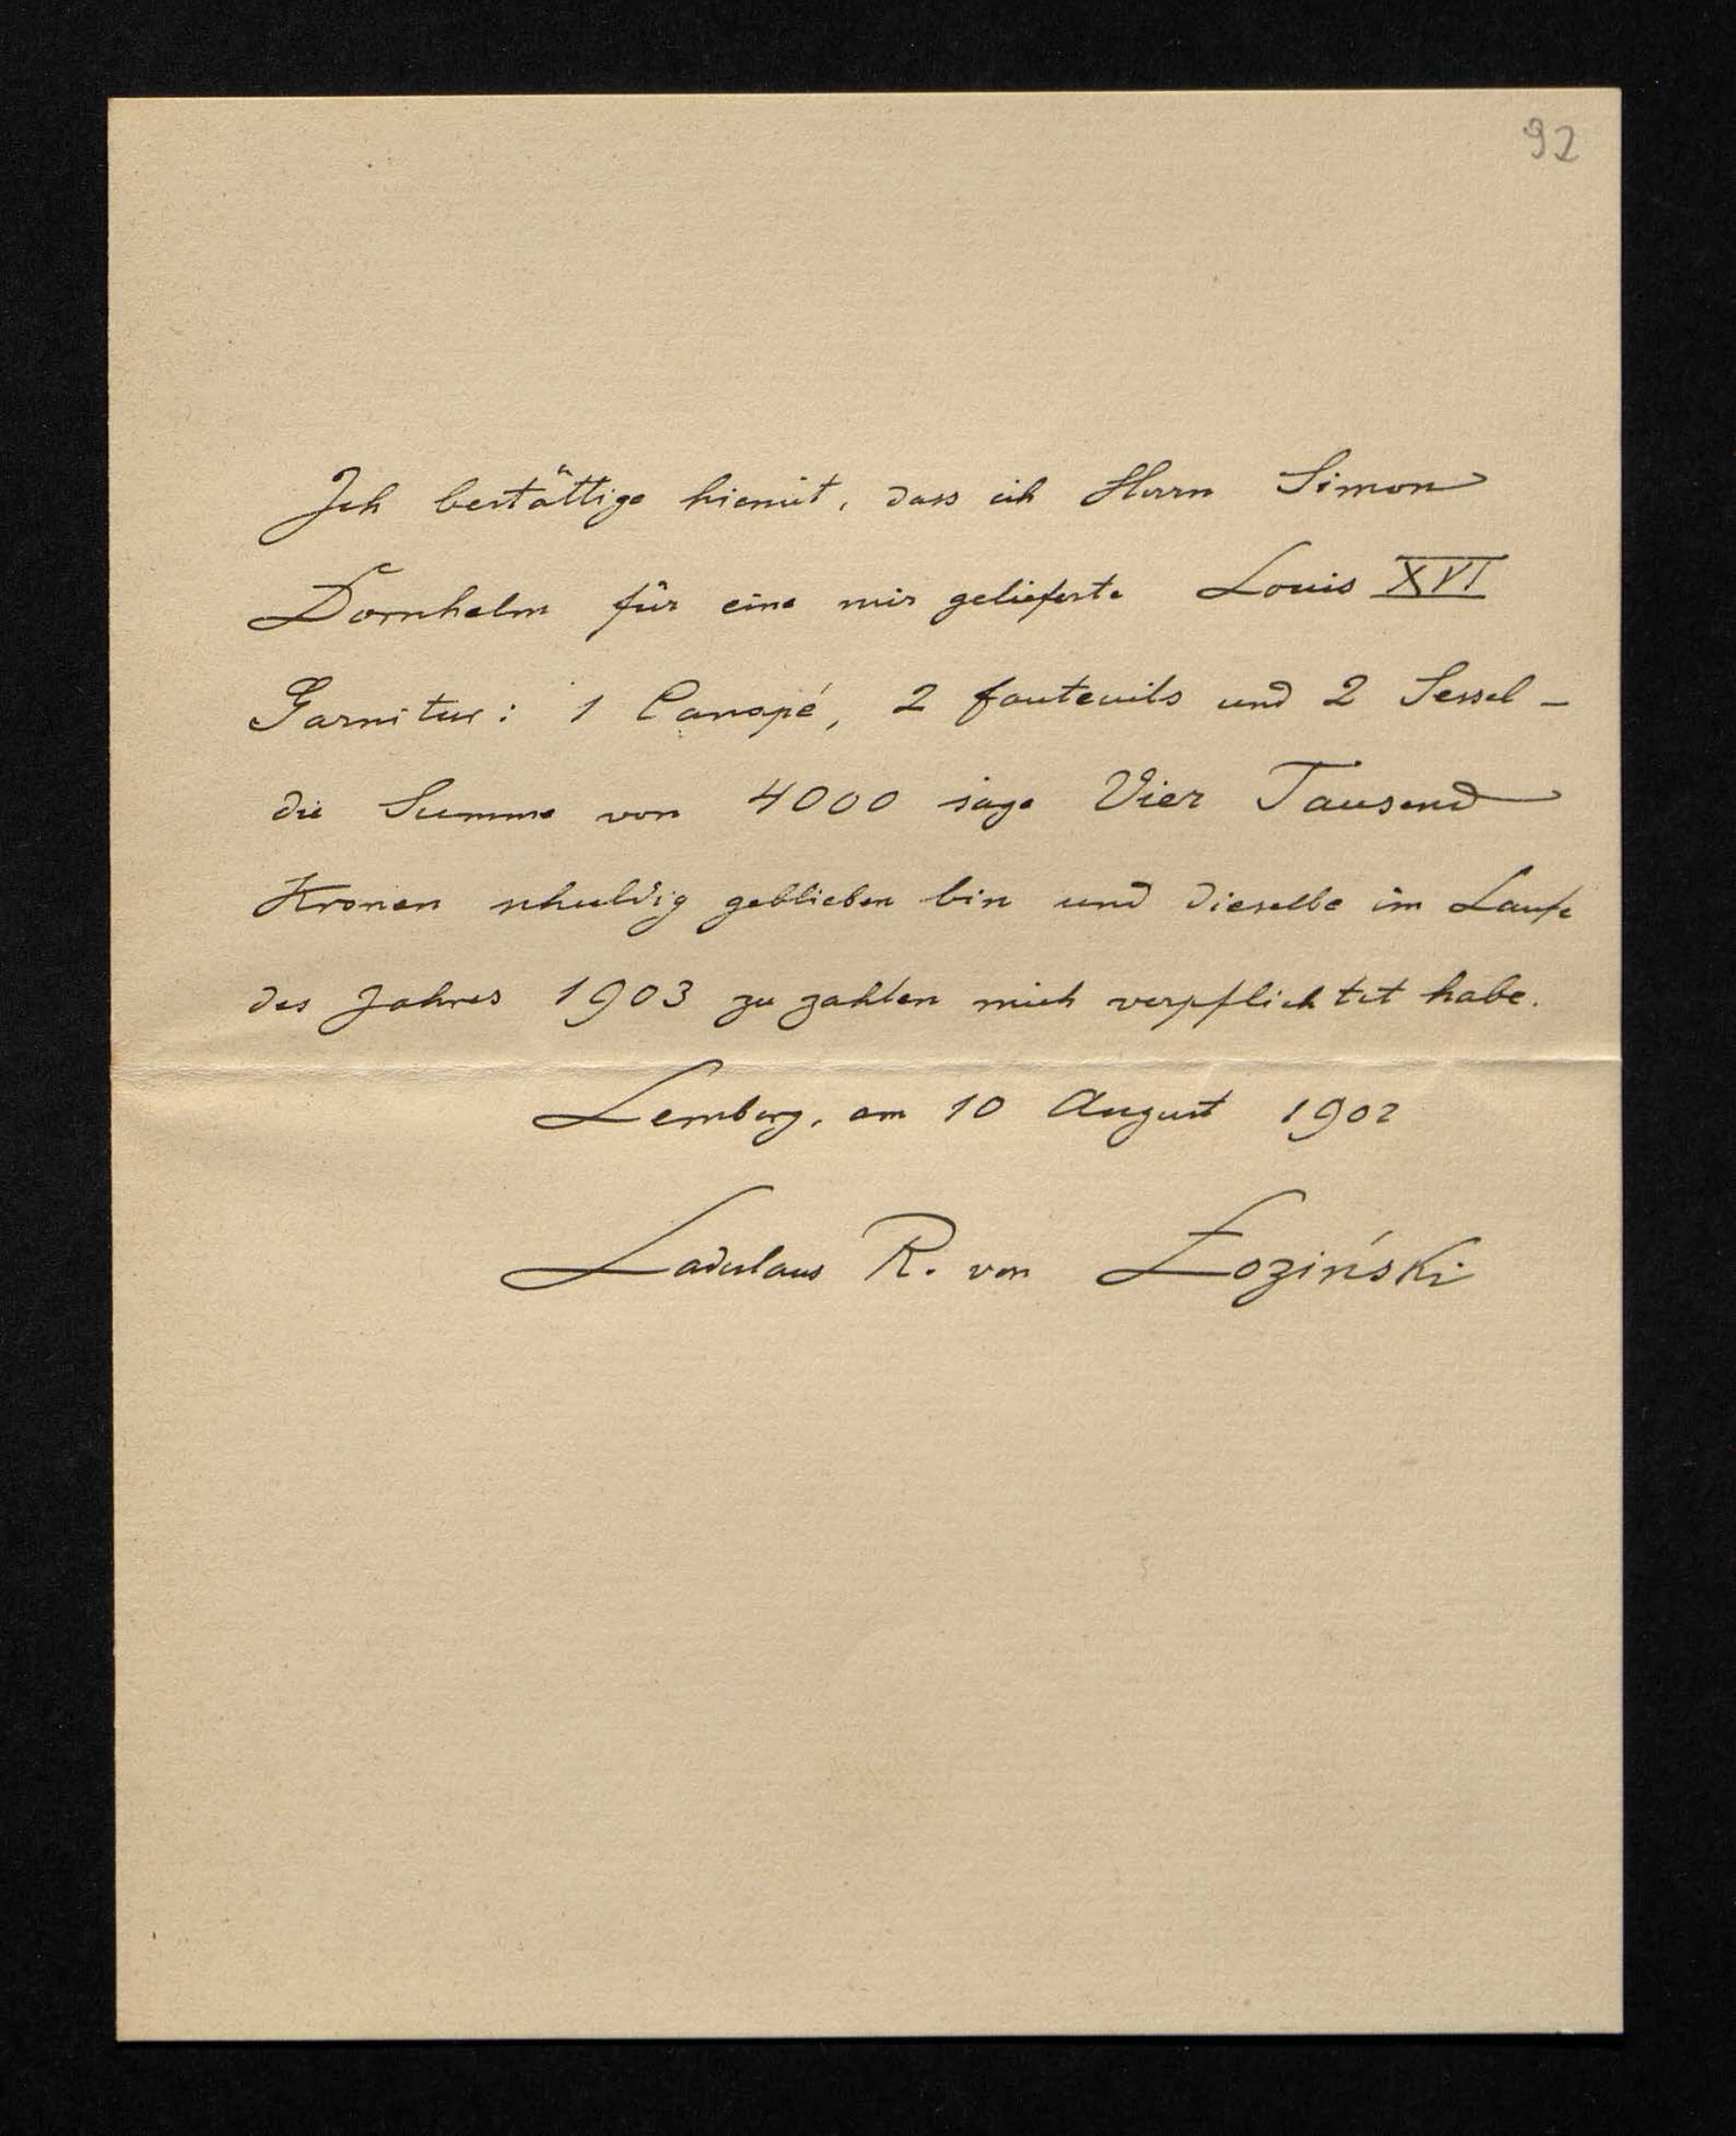 92
Ich bestättige hiemit, dass ich Herrn Simon
Dornhelm für eine mir gelieferte Louis XVI
Garnitur: 1 Canapé, 2 fauteuils und 2 Sessel –
die Summe von 4000 sage Vier Tausend
Kronen schuldig geblieben bin und dieselbe im Laufe
des Jahres 1903 zu zahlen mich verpflichtet habe.
Lemberg, am 10 August 1902
Ladislaus R. von Łoziński